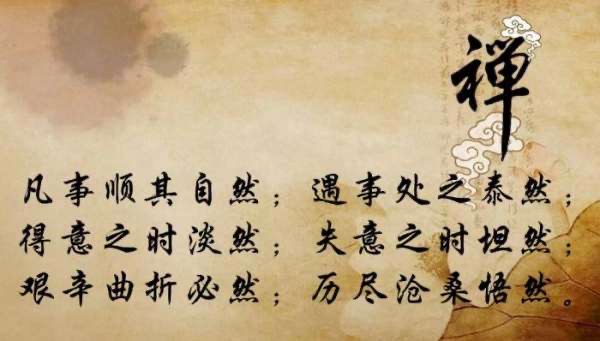 禅
凡事顺其自然；遇事处之泰然；
得意之时淡然；失意之时坦然；
艰辛曲折必然；历尽沧桑悟然。